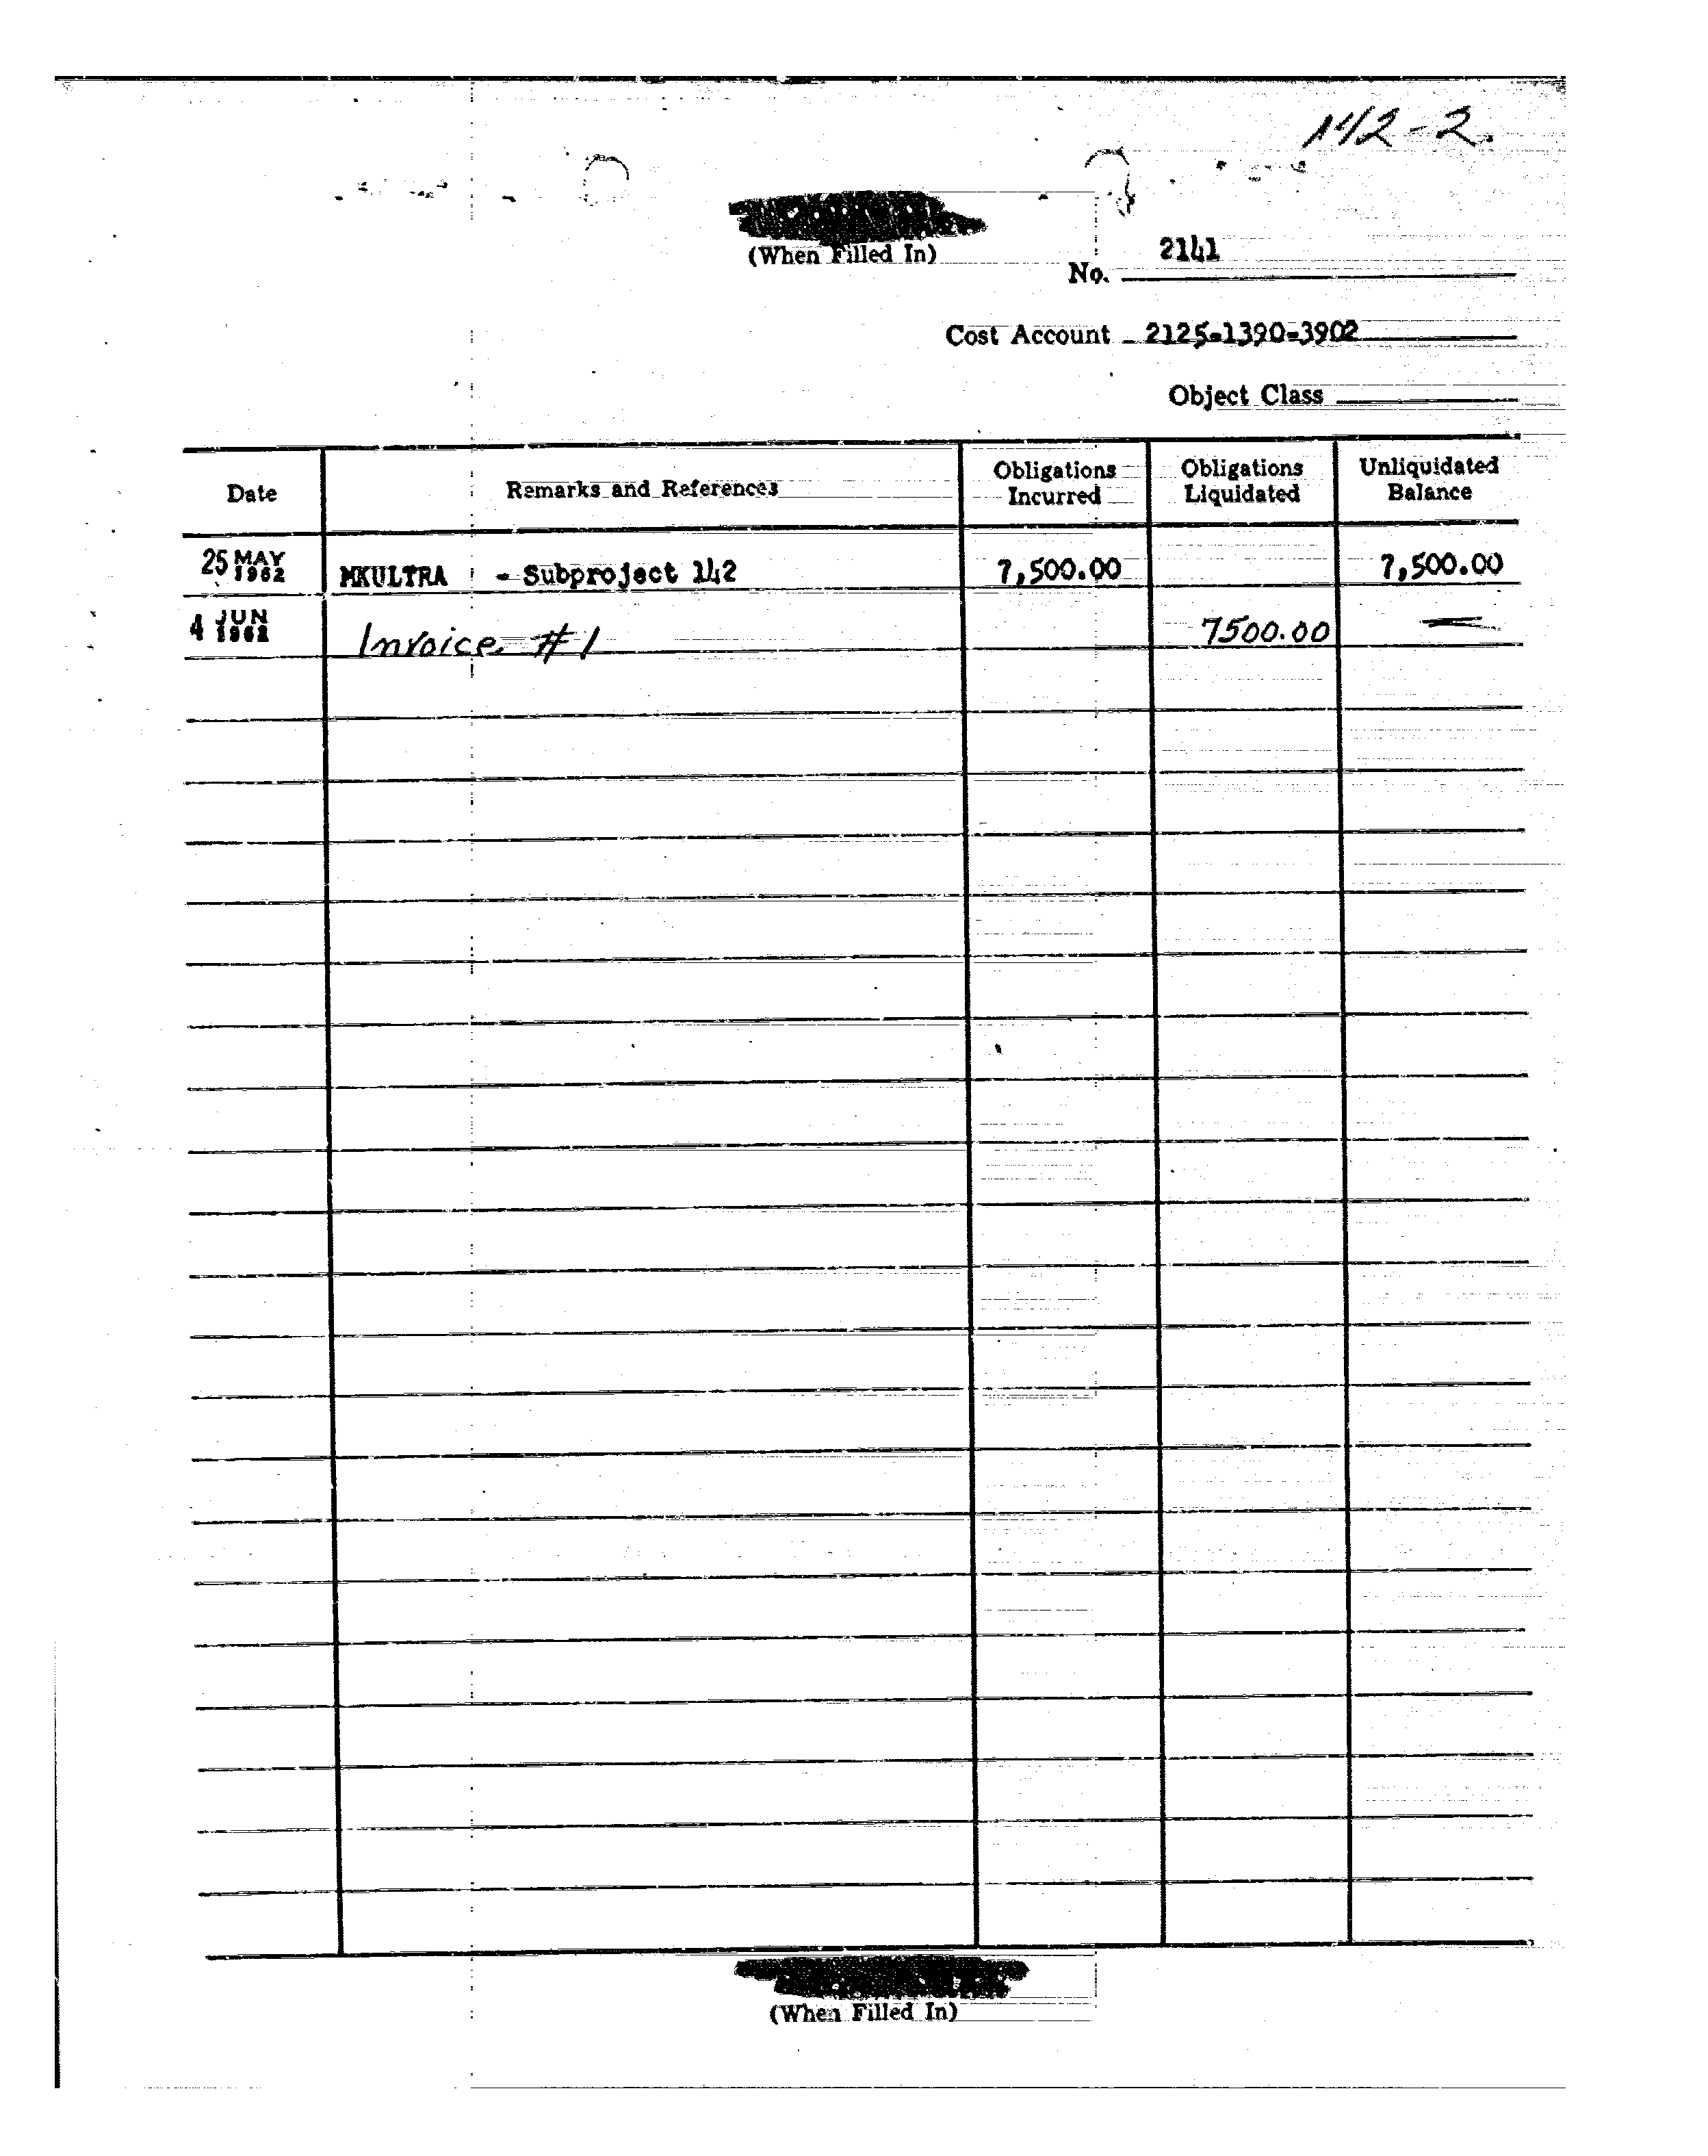 142-2.
(When Filled In)
No. 2141
Cost Account 2125-1390-3902
Object Class
Date Remarks and References Obligations Incurred Obligations Liquidated Unliquidated Balance
25 MAY 1962 MKULTRA - Subproject 142 7,500.00 7,500.00
4 JUN 1962 Invoice #1 7500.00 —
(When Filled In)